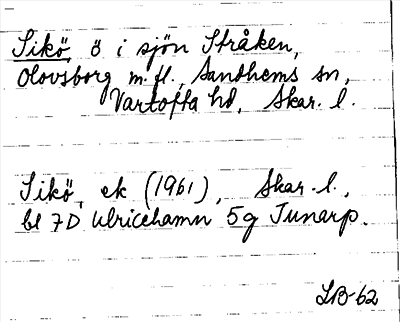 Sikö, ö i sjön Stråken,
Olovsborg m.fl., Sandhems sn,
Vartofta hd, Skar. l.
Sikö, ek (1961), Skar. l.,
bl 7D Ulricehamn 5g Tunarp.
LB-62